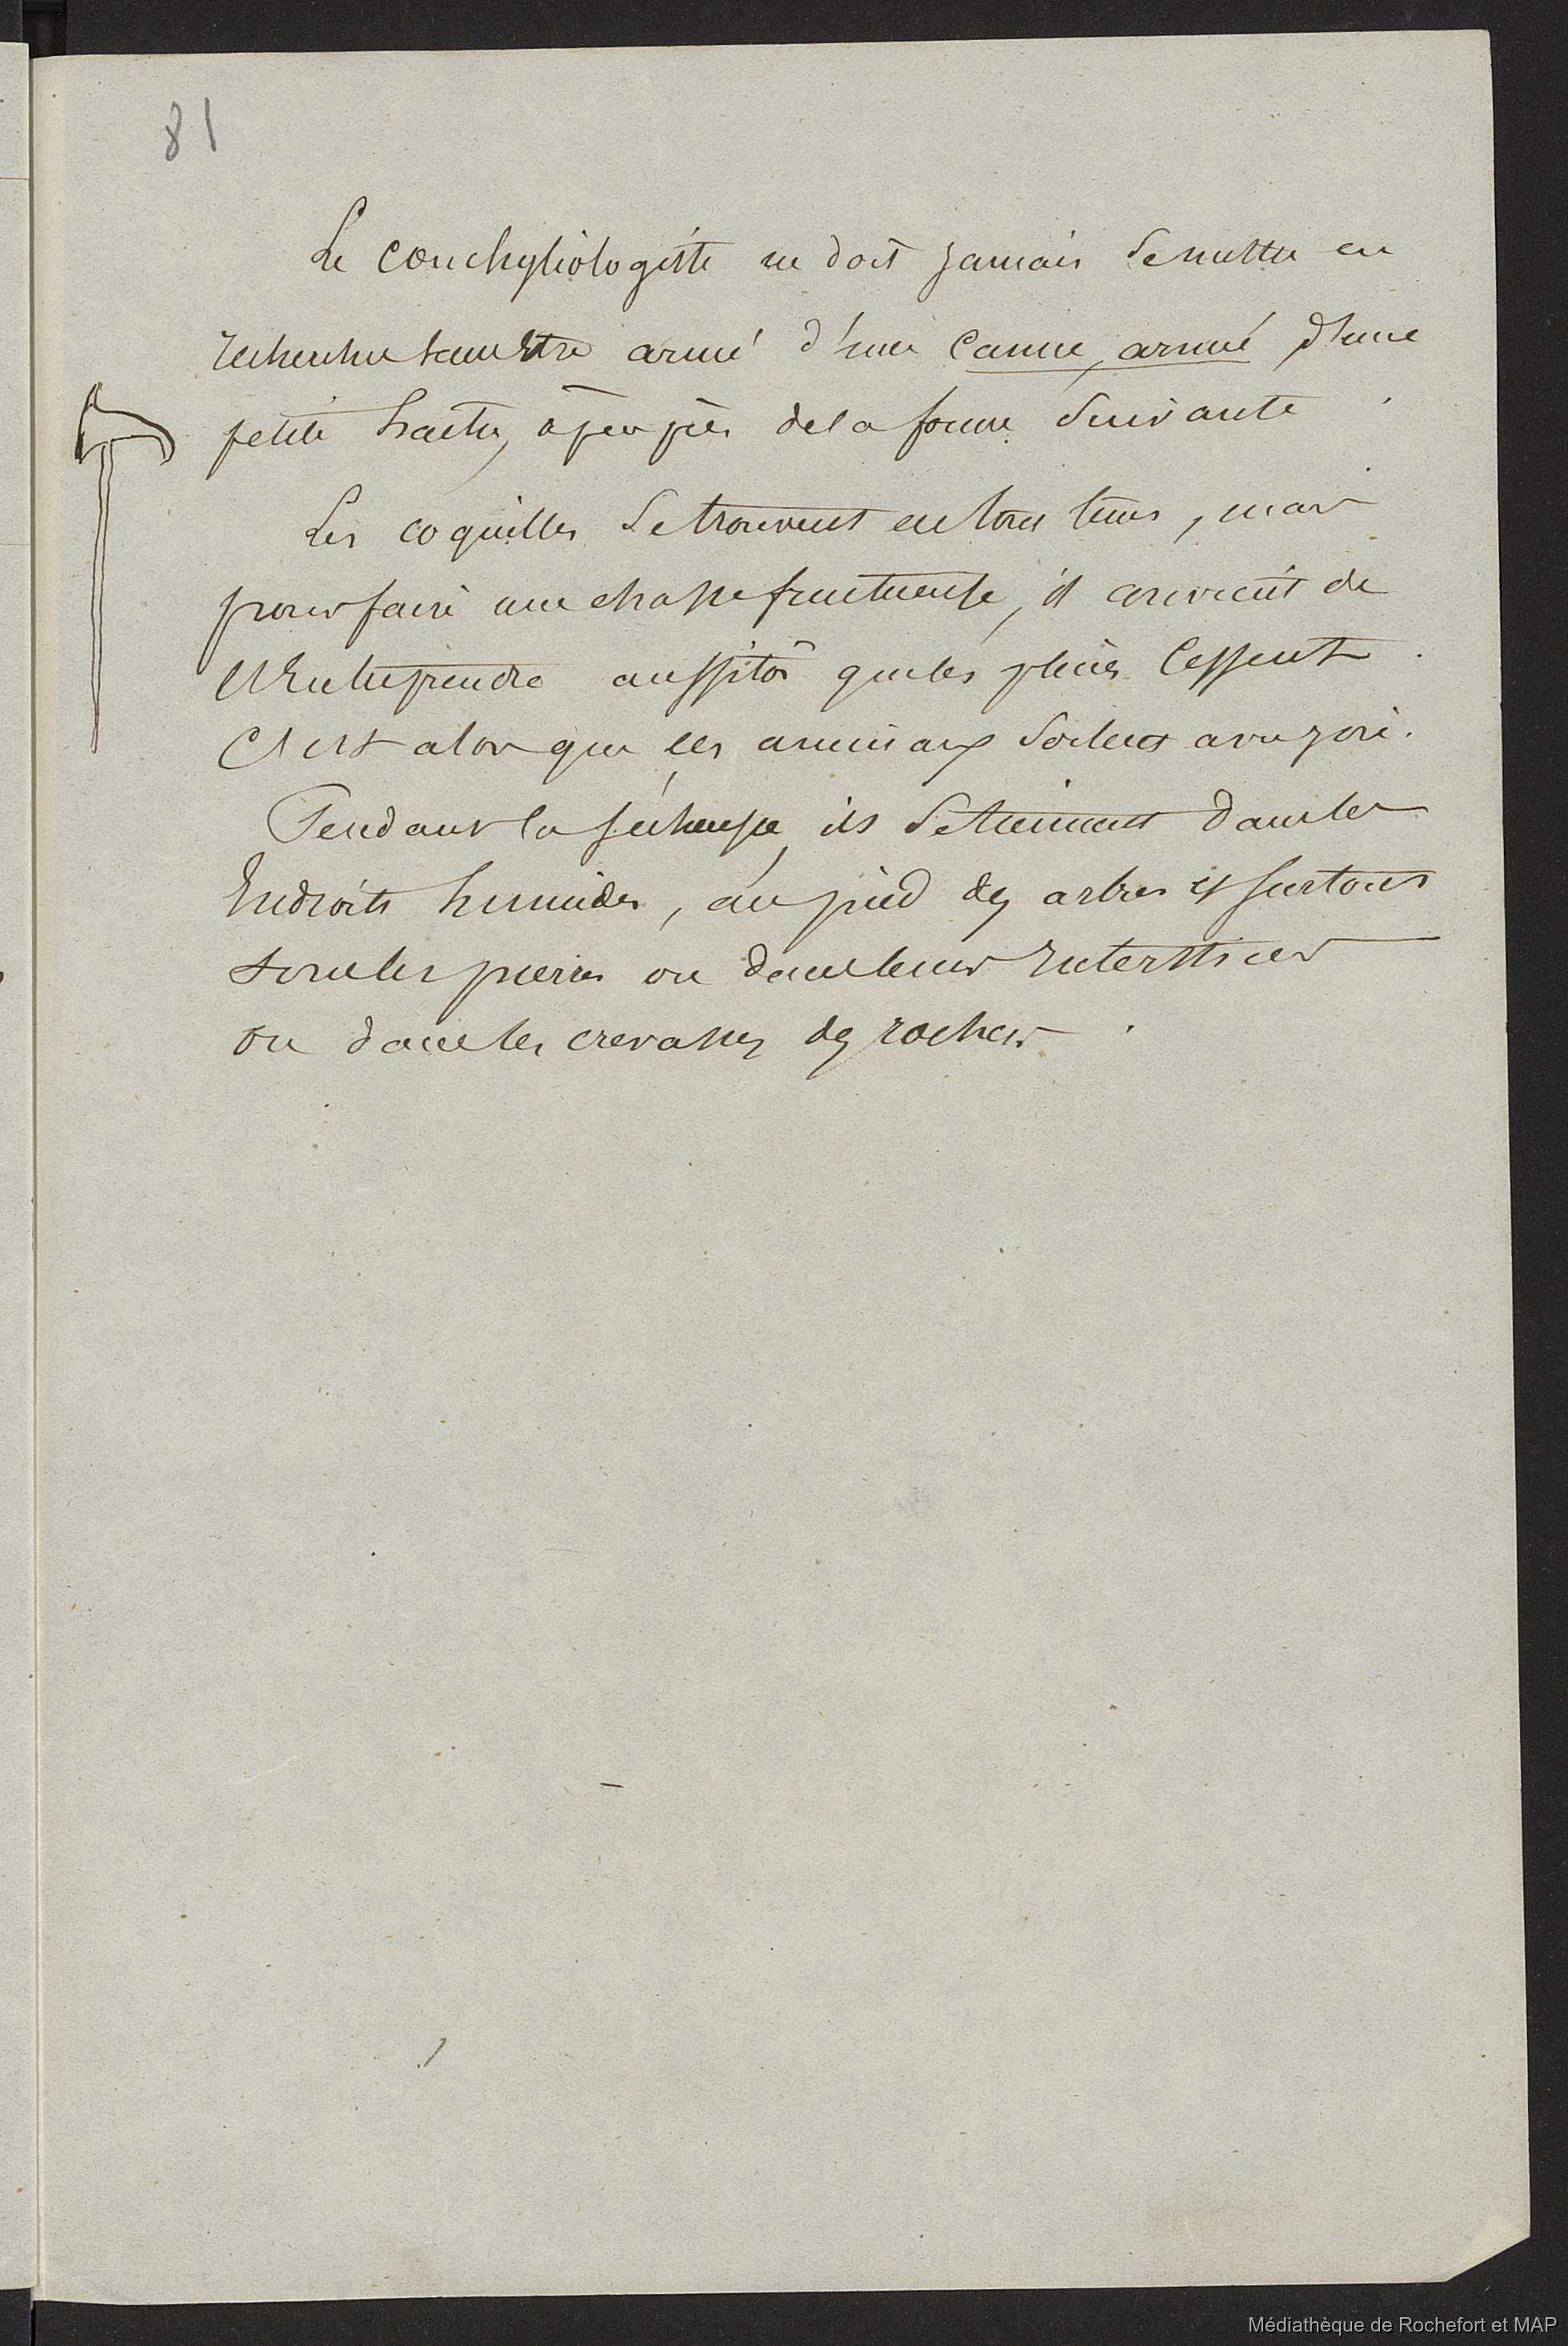 81
Le conchyliologiste ne doit jamais se mettre en
recherche sans être armé d'une canne, armée d'une
petite hache, à peu près de la forme suivante
Les coquilles se trouvent en tous tems, mais
pour faire une chasse fructueuse, il convient de
l'entreprendre aussitôt que les pluies cessent.
C'est alors que les animaux sortent avec joie.
Pendant la sécheresse, ils se tiennent dans les
endroits humides, au pied des arbres et surtout
sous les pierres ou dans leurs interstices
ou dans les crevasses des rochers.
Médiathèque de Rochefort et MAP